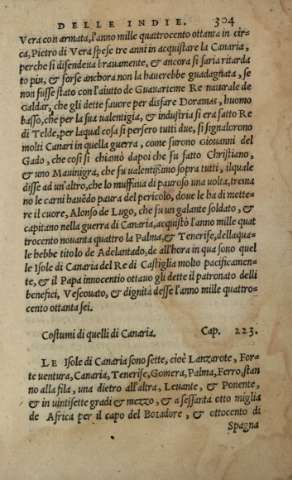 DELLE INDIE. 304
Vera con armata, l'anno mille quattrocento ottanta in cir-
ca, Pietro di Vera spese tre anni in acquistare la Canaria,
perche si difendena brauamente, & ancora si saria ritarda
to piu, & forse anchora non la hauerebbe guadagnata, se
non fusse stato con l'aiuto de Guanarteme Re naturale de
Galdar, che gli dette fauore per disfare Doramas, huomo
basso, che per la sua ualentigia, & industria si era fatto Re
di Telde, per laqual cosa si persero tutti due, si segnalorono
molti Canari in quella guerra, come furono Giouanni del
Gado, che cosi si chiamò dapoi che fu fatto Christiano,
& uno Mauinigra, che fu ualentissimo sopra tutti, ilquale
disse ad un'altro, che lo muffaua di pauroso una uolta, trema
no le carni hauēdo paura del pericolo, doue le ha di mette-
re il cuore, Alonso de Lugo, che fu un galante soldato, &
capitano nella guerra di Canaria, acquistò l'anno mille quat
trocento nouanta quattro la Palma, & Tenerife, dellaqua-
le hebbe titolo de Adelantado, de all'hora in qua sono quel
le Isole di Canaria del Re di Castiglia molto pacificamen-
te, & il Papa innocentio ottauo gli dette il patronato delli
benefici, Vescouato, & dignità desse l'anno mille quattro-
cento ottanta sei.
Costumi di quelli di Canaria. Cap. 223.
LE Isole di Canaria sono sette, cioè Lanzarote, For-
te uentura, Canaria, Tenerife, Gomera, Palma, Ferro, stan
no alla fila, una dietro all'altra, Leuante, & Ponente,
& in uintisette gradi & mezzo, & a sessanta otto miglia
de Africa per il capo del Boiador, & ottocento di
Spagna